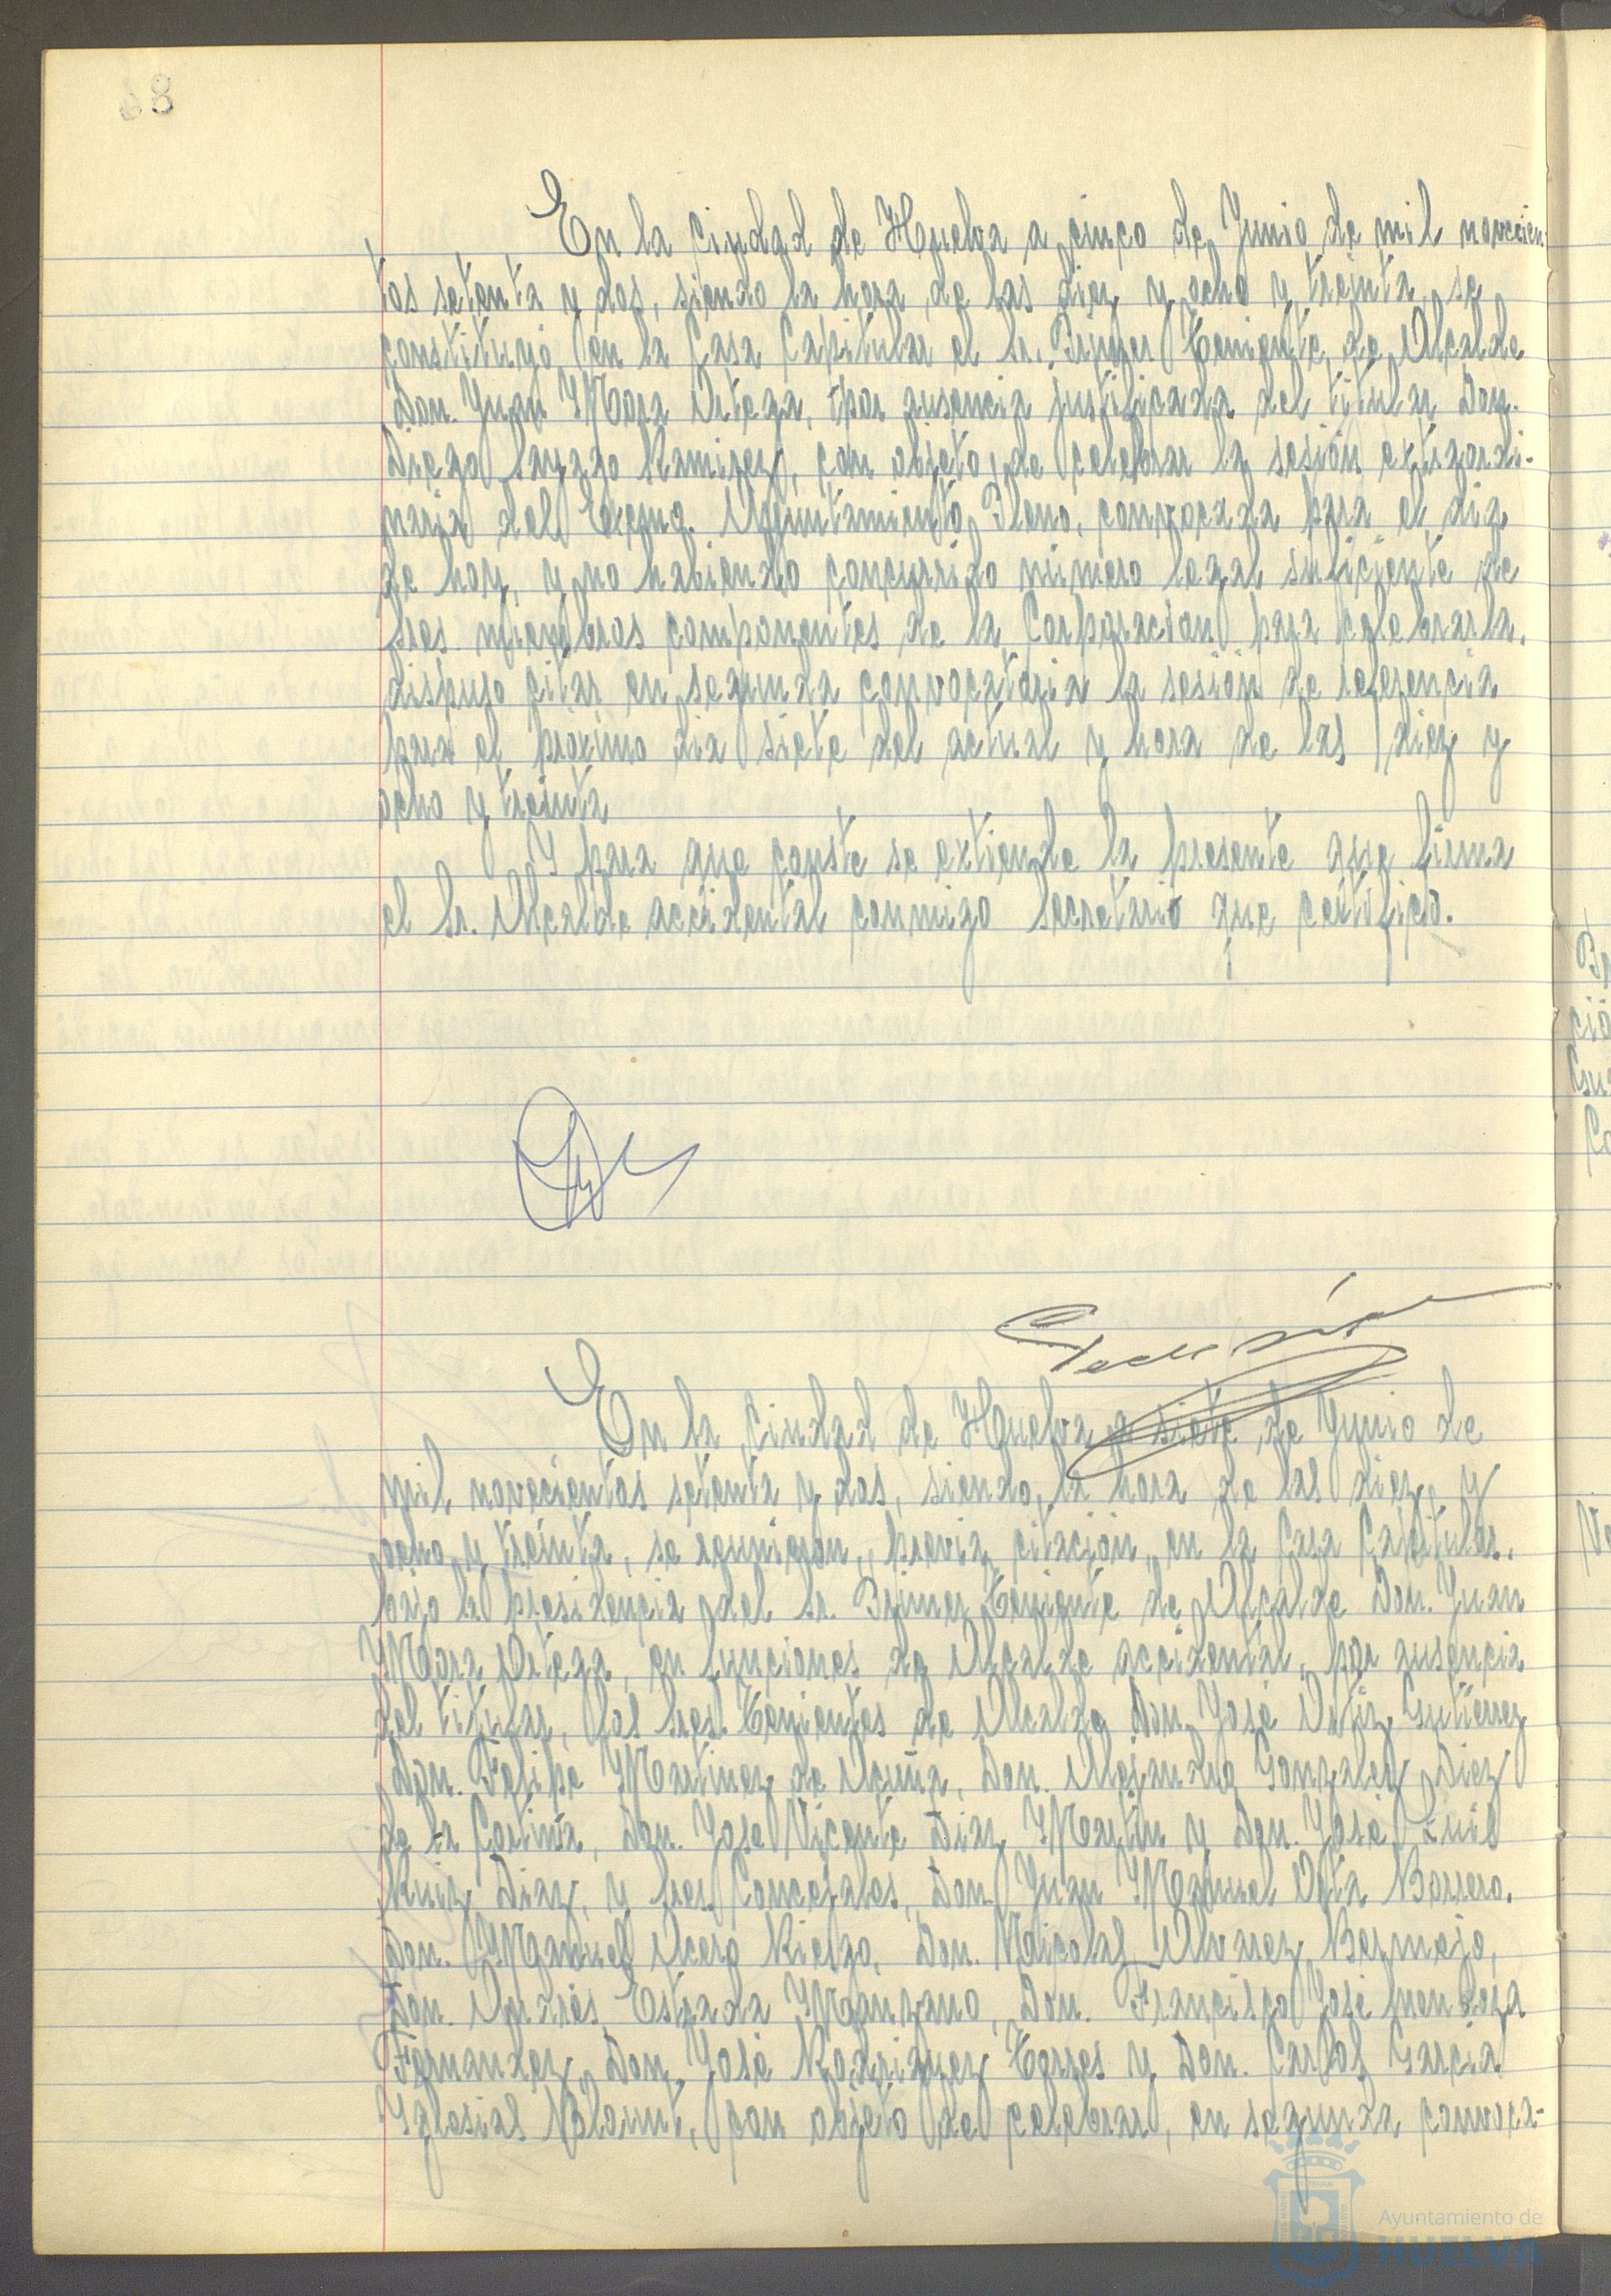 48
En la Ciudad de Huelva a cinco de Junio de mil novecien-
tos setenta y dos, siendo la hora de las diez y ocho y treinta, se
constituyó en la Casa Capitular el Sr. Primer Teniente de Alcalde
Don. Juan Mora Ortega, por ausencia justificada del titular Don.
Diego Sayago Ramirez, con objeto de celebrar la sesión extraordi-
naria del Excmo. Ayuntamiento Pleno, convocada para el dia
de hoy, y no habiendo concurrido número legal suficiente de
Sres. miembros componentes de la Corporación para celebrarla,
dispuso citar en segunda convocatoria la sesión de referencia
para el próximo dia siete del actual y hora de las diez y
ocho y treinta
Y para que conste se extiende la presente que firma
el Sr. Alcalde accidental conmigo Secretario que certifico.
En la Ciudad de Huelva a siete de Junio de
mil novecientos setenta y dos, siendo la hora de las diez y
ocho y treinta, se reunieron, previa citación, en la Casa Capitular,
bajo la presidencia del Sr. Primer Teniente de Alcalde Don. Juan
Mora Ortega, en funciones de Alcalde accidental, por ausencia
del titular, los Sres. Tenientes de Alcalde Don José Ortiz Gutierrez
Don. Felipe Martinez de Acuña, Don. Alejandro Gonzalez Diez
de la Cortina, Don. Jose Vicente Diaz Martin y Don. José Luis
Ruiz Diaz, y Sres. Concejales, Don Juan Manuel Orta Borrero,
Don. Manuel Acero Riesgo, Don. Nicolas Alvarez Bermejo,
Don. Andrés Estrada Manzano, Don. Francisco José Mendoza
Fernandez, Don. José Rodriguez Torres y Don. Carlos Garcia
Iglesias Nolomit, con objeto de celebrar, en segunda convoca-
Ayuntamiento de
HUELVA